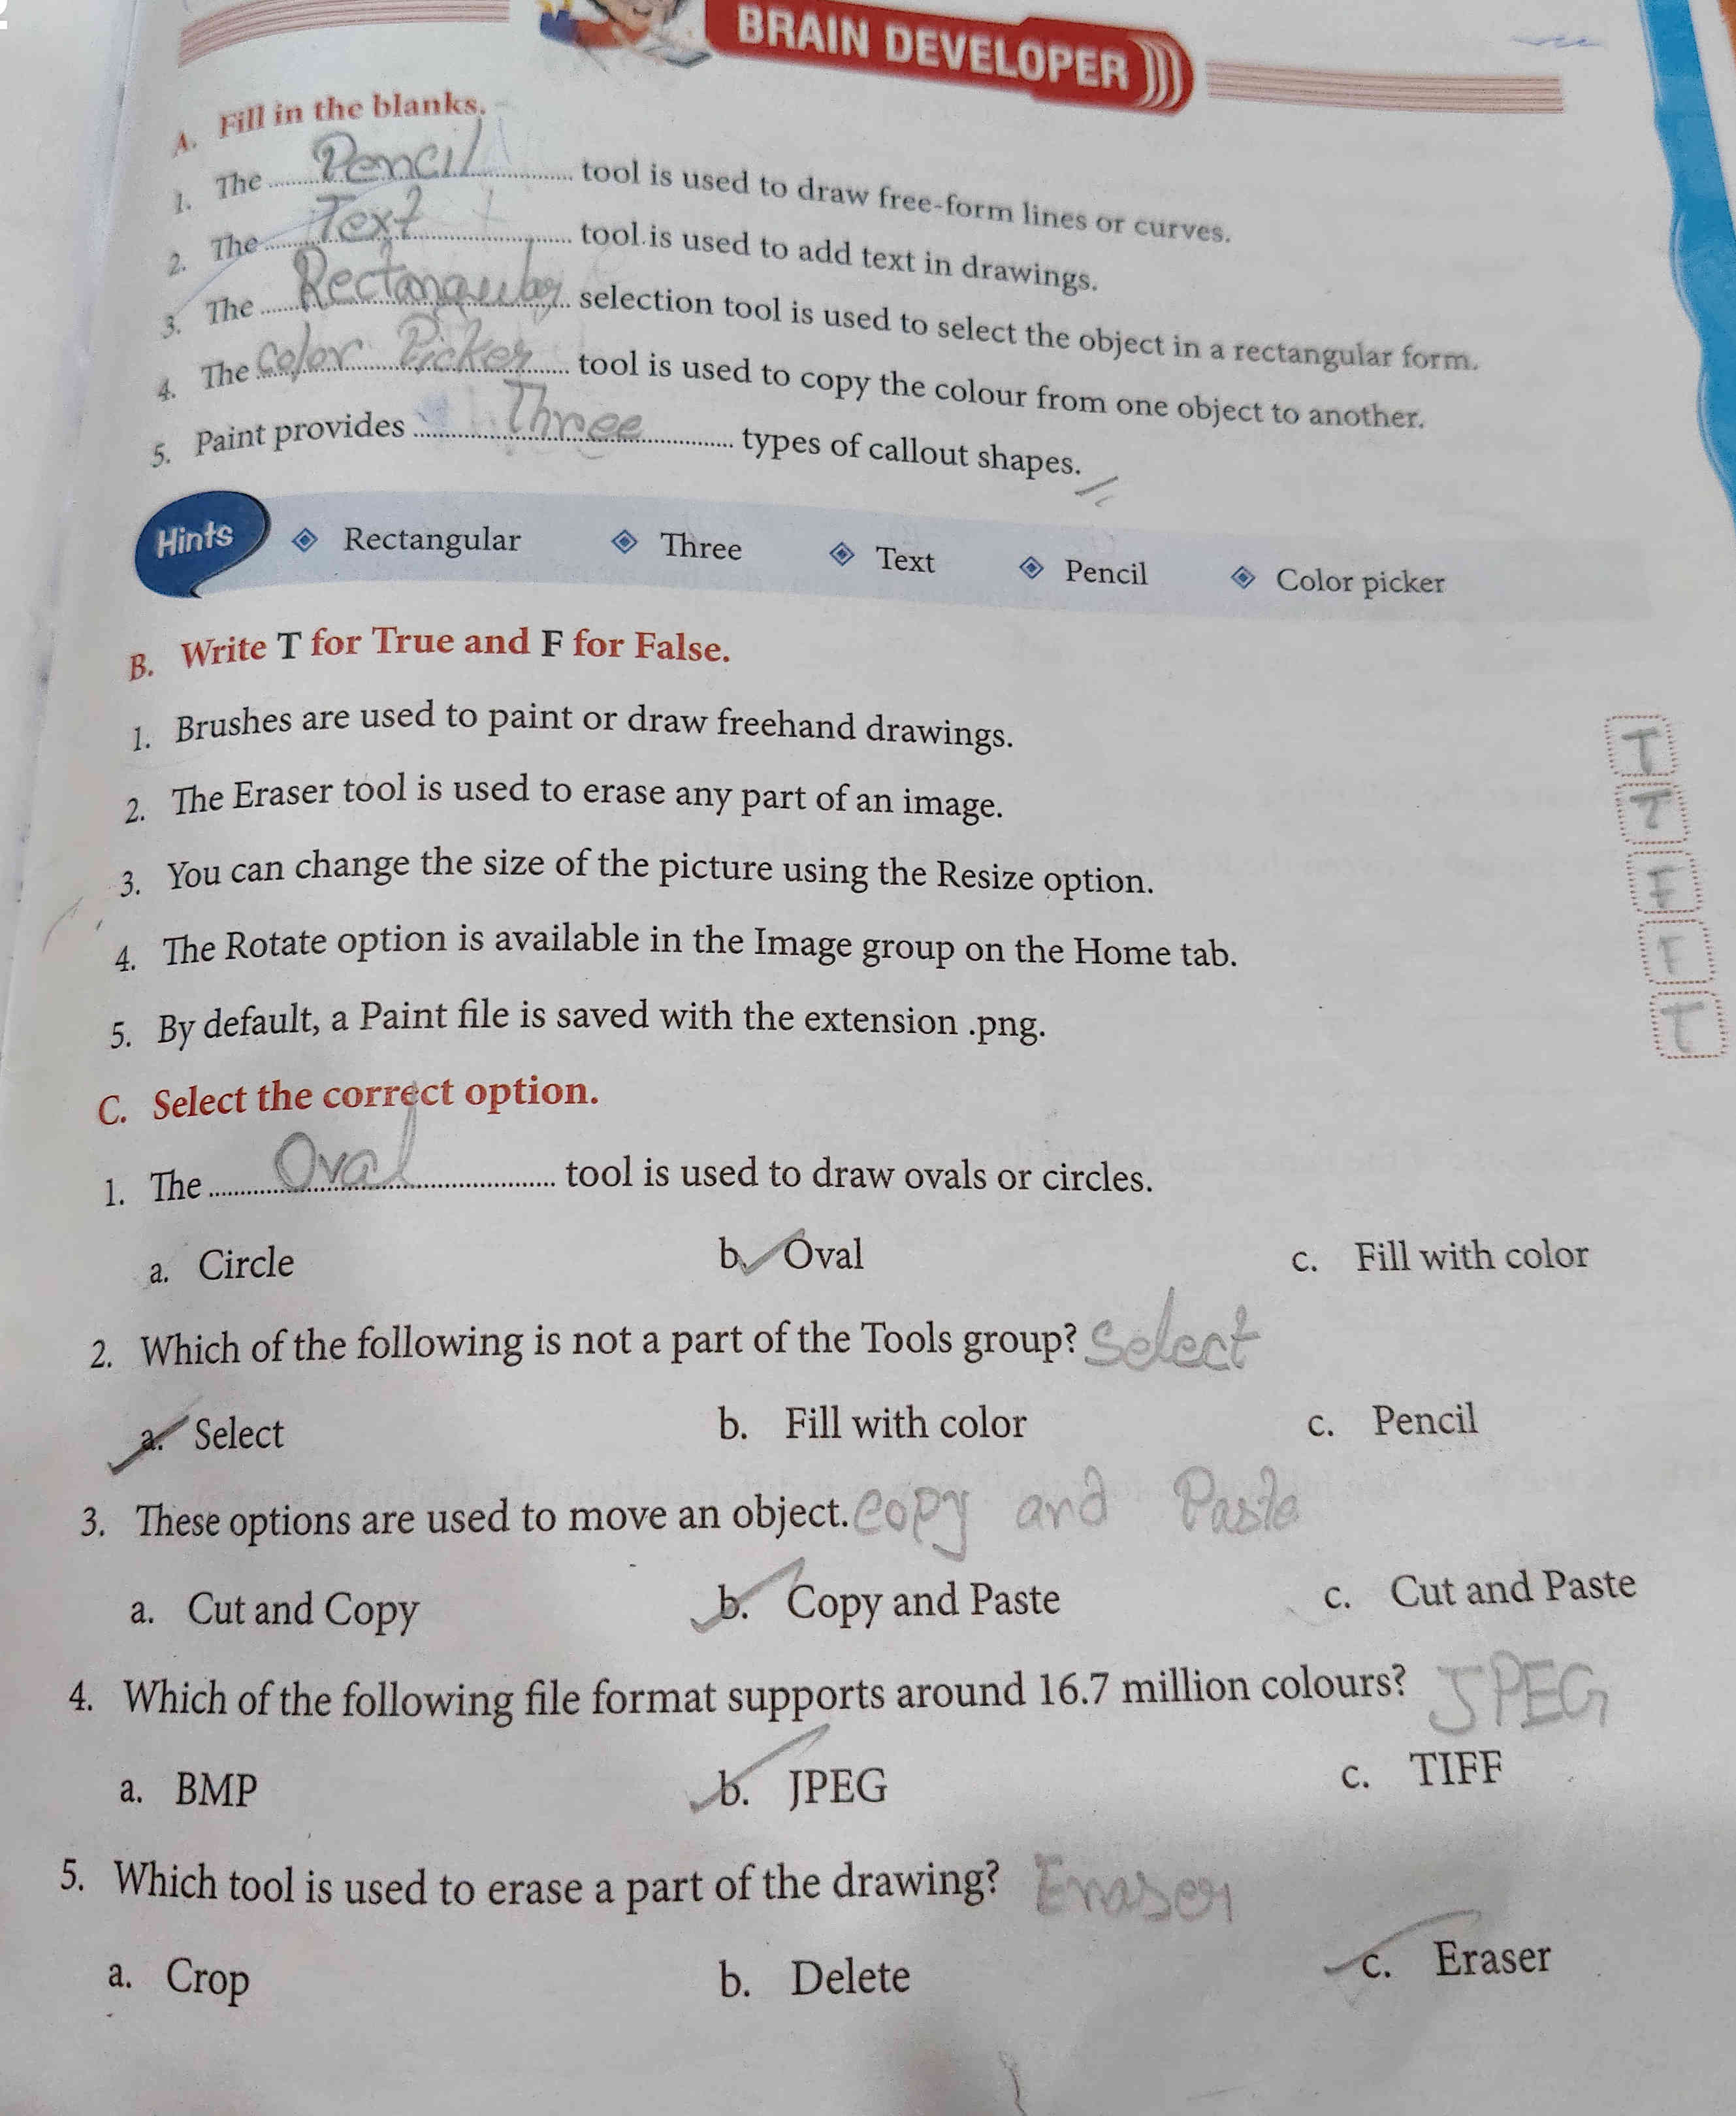 BRAIN DEVELOPER
A. Fill in the blanks.
1. The Pencil tool is used to draw free-form lines or curves.
2. The Text tool is used to add text in drawings.
3. The Rectangular selection tool is used to select the object in a rectangular form.
4. The Color Picker tool is used to copy the colour from one object to another.
5. Paint provides Three types of callout shapes.
Hints Rectangular Three Text Pencil Color picker
B. Write T for True and F for False.
1. Brushes are used to paint or draw freehand drawings. T
2. The Eraser tool is used to erase any part of an image. T
3. You can change the size of the picture using the Resize option. F
4. The Rotate option is available in the Image group on the Home tab. F
5. By default, a Paint file is saved with the extension .png. T
C. Select the correct option.
1. The Oval tool is used to draw ovals or circles.
a. Circle b. Oval c. Fill with color
2. Which of the following is not a part of the Tools group? Select
a. Select b. Fill with color c. Pencil
3. These options are used to move an object. Copy and Paste
a. Cut and Copy b. Copy and Paste c. Cut and Paste
4. Which of the following file format supports around 16.7 million colours? JPEG
a. BMP b. JPEG c. TIFF
5. Which tool is used to erase a part of the drawing? Eraser
a. Crop b. Delete c. Eraser